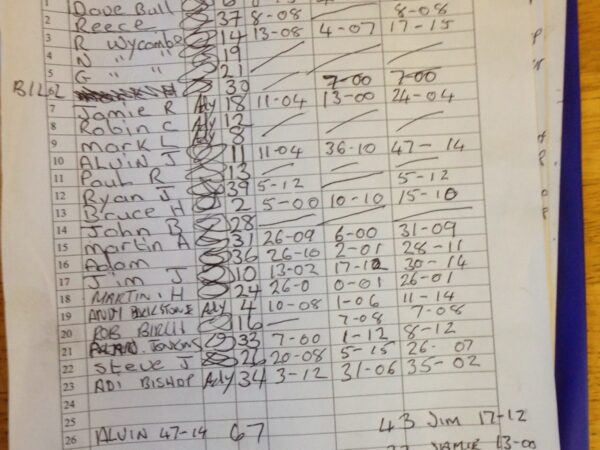 1 Dave Bull
2 Reece 37 8-08 8-08
3 R Wycombe 14 13-08 4-07 17-15
4 N " " 19
5 G " " 21
BILL 6 30 7-00 7-00
7 Jamie R Ady 18 11-04 13-00 24-04
8 Robin C Ady 12
9 Mark L Ady 8
10 ALVIN J 11 11-04 36-10 47-14
11 Paul R 13
12 Ryan J 39 5-12 5-12
13 Bruce H 2 5-00 10-10 15-10
14 John B 28
15 Martin A 31 26-09 6-00 31-09
16 Adam 36 26-10 2-01 28-11
17 Jim J 10 13-02 17-12 30-14
18 MARTIN H 24 26-0 0-01 26-01
19 ANDY Ady 4 10-08 1-06 11-14
20 ROB BIRCH 16 — 7-08 7-08
21 JENKINS 33 7-00 1-12 8-12
22 Steve J 26 20-08 5-15 26-07
23 ADI BISHOP Ady 34 3-12 31-06 35-02
24
25
26 ALVIN 47-14 67 43 Jim 17-12
JAMIE 13-00